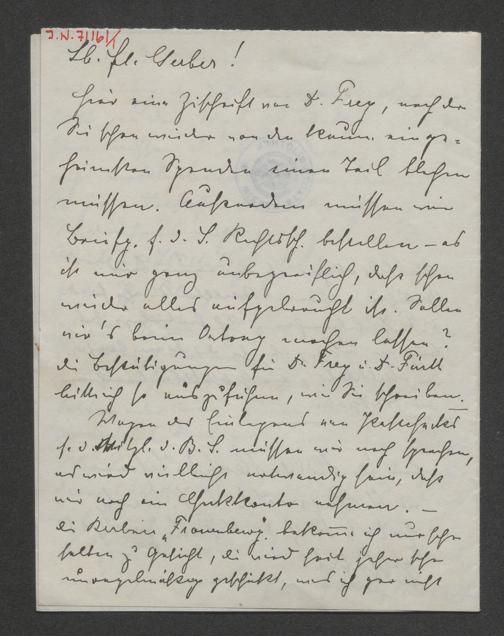 J.N. 7/16/1
Lb. Fl. Gerber!
Hier eine Zuschrift von Dr. Frey, nach der
Sie schon wieder von den kaum einge-
heimsten Spenden einen Teil blechen
müssen. Außerdem müssen wir
Briefp. f. d. S. Rechtssch. bestellen – es
ist mir ganz unbegreiflich, daß schon
wieder alles aufgebraucht ist. Sollen
wir's beim machen lassen?
die Bestätigungen für Dr. Frey u. Dr. Fürth
bitte ich so auszuführen, wie Sie schreiben.
Wegen der Einlegens von
f. d. Mitgl. d. B. S. müssen wir noch sprechen,
es wird vielleicht notwendig sein, daß
wir noch ein nehmen. –
die Berliner "Frauenbeweg." bekomme ich nur sehr
selten zu Gesicht, die wird seit jeher sehr
unregelmäßig geschickt, was ich gar nicht